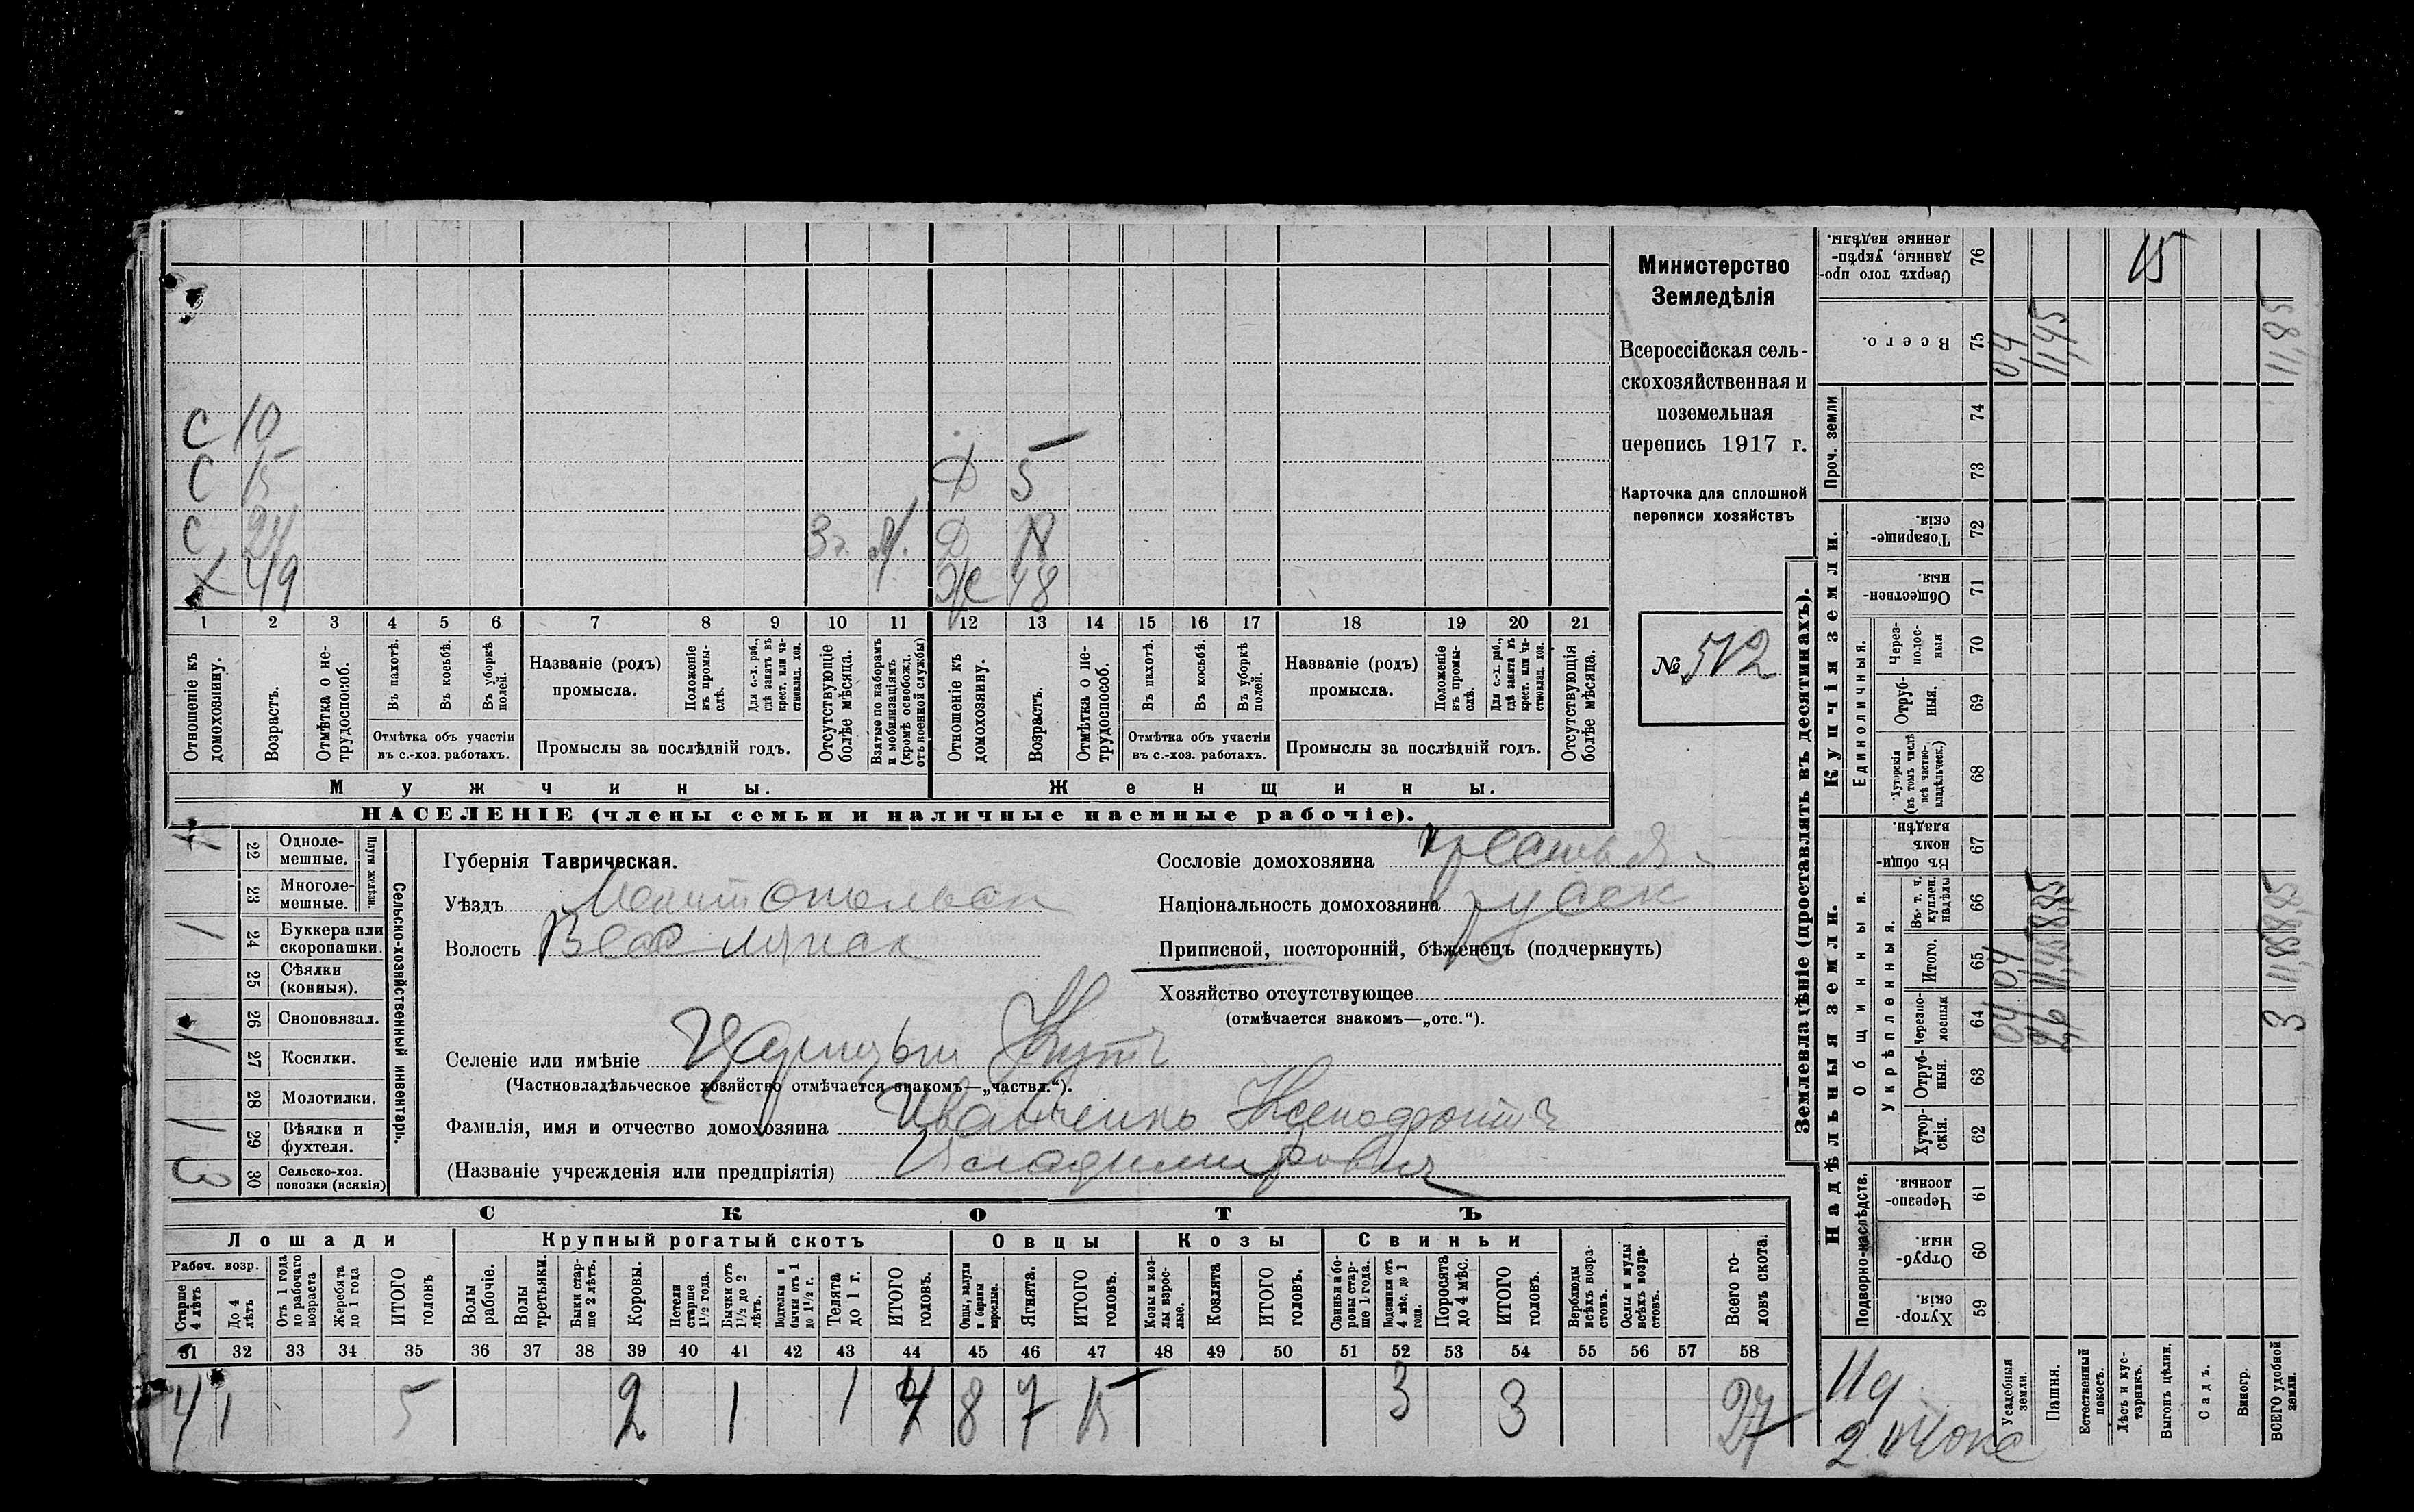 С 10
С 15 Д 5
С 24 3 г. М. Д 18
Х 49 Ж 48
1 2 3 4 5 6 7 8 9 10 11 12 13 14 15 16 17 18 19 20 21
Отношеніе къ домохозяину.
Возрастъ.
Отмѣтка о нетрудоспособ.
Въ пахотѣ.
Въ косьбѣ.
Въ уборкѣ полей.
Отмѣтка объ участіи въ с.-хоз. работахъ.
Названіе (родъ) промысла.
Положеніе въ промыслѣ.
Для с.-х. раб., гдѣ занятъ въ крест. или частновлад. хоз.
Промыслы за послѣдній годъ.
Отсутствующіе болѣе мѣсяца.
Взятые по наборамъ и мобилизаціямъ (кромѣ освобожд. отъ военной службы)
Отношеніе къ домохозяину.
Возрастъ.
Отмѣтка о нетрудоспособ.
Въ пахотѣ.
Въ косьбѣ.
Въ уборкѣ полей.
Отмѣтка объ участіи въ с.-хоз. работахъ.
Названіе (родъ) промысла.
Положеніе въ промыслѣ.
Для с.-х. раб., гдѣ занята въ крест. или частновлад. хоз.
Промыслы за послѣдній годъ.
Отсутствующія болѣе мѣсяца.
Мужчины. Женщины.
НАСЕЛЕНІЕ (члены семьи и наличные наемные рабочіе).
Министерство
Земледѣлія
Всероссійская сель-
скохозяйственная и
поземельная
перепись 1917 г.
Карточка для сплошной
переписи хозяйствъ
№ 512
Сельско-хозяйственный инвентарь.
Плуги желѣзн.
22 Одноле-мешные. 1
23 Многоле-мешные.
24 Буккера или скоропашки. 1
25 Сѣялки (конныя).
26 Сноповязал.
27 Косилки. 1
28 Молотилки.
29 Вѣялки и фухтеля. 1
30 Сельско-хоз. повозки (всякія) 3
Губернія Таврическая.
Уѣздъ Мелитопольск
Волость Веселянск
Селеніе или имѣніе Царицын Кутъ
(Частновладѣльческое хозяйство отмѣчается знакомъ—„частвл.“).
Фамилія, имя и отчество домохозяина Иванченко Ксенофонтъ
(Названіе учрежденія или предпріятія) Владимирович
Сословіе домохозяина крестья.
Національность домохозяина русск
Приписной, посторонній, бѣженецъ (подчеркнуть)
Хозяйство отсутствующее
(отмѣчается знакомъ—„отс.“).
СКОТЪ
Лошади Крупный рогатый скотъ Овцы Козы Свиньи
Рабоч. возр.
Старше 4 лѣтъ
До 4 лѣтъ
Отъ 1 года до рабочаго возраста
Жеребята до 1 года
ИТОГО головъ
Волы рабочіе.
Волы третьяки.
Быки старше 2 лѣтъ.
Коровы.
Нетели старше 1½ года.
Бычки отъ 1½ до 2 лѣтъ.
Подтелки и бычки отъ 1 до 1½ г.
Телята до 1 г.
ИТОГО головъ.
Овцы, валухи и бараны взрослые.
Ягнята.
ИТОГО головъ.
Козы и козлы взрослые.
Козлята
ИТОГО головъ.
Свиньи и боровы старше 1 года.
Подсвинки отъ 4 мѣс. до 1 года.
Поросята до 4 мѣс.
ИТОГО головъ.
Верблюды всѣхъ возрастовъ.
Ослы и мулы всѣхъ возрастовъ.
Всего головъ скота.
31 32 33 34 35 36 37 38 39 40 41 42 43 44 45 46 47 48 49 50 51 52 53 54 55 56 57 58
4 1 5 2 1 1 4 8 7 15 3 3 27
Землевладѣніе (проставлять въ десятинахъ).
Купчія земли.
Надѣльныя земли.
Сверхъ того проданные, укрѣпленные надѣлы. 76
Всего. 75
Проч. земли 74 73
Товарищескія. 72
Общественныя. 71
Единоличныя.
Черезполосныя 70
Отрубныя. 69
Хуторскія (въ томъ числѣ всѣ частновладѣльческ.) 68
Общинныя.
Въ общинномъ владѣн. 67
Укрѣпленныя.
Въ т. ч. куплен. надѣлы 66
Итого. 65
Черезполосныя 64
Отрубныя. 63
Хуторскія. 62
Подворно-наслѣдств.
Черезполосныя. 61
Отрубныя. 60
Хуторскія. 59
Усадебныя земли.
Пашня.
Естественный покосъ.
Лѣсъ и кустарникъ.
Выгонъ цѣлин.
Садъ.
Виногр.
ВСЕГО удобной земли.
15
0,4
11,45
11,85
0,4
3